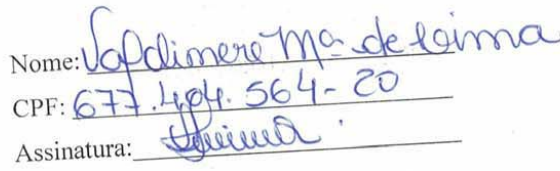 Nome: Valdimere Mª de Lima
CPF: 677.404.564-20
Assinatura: